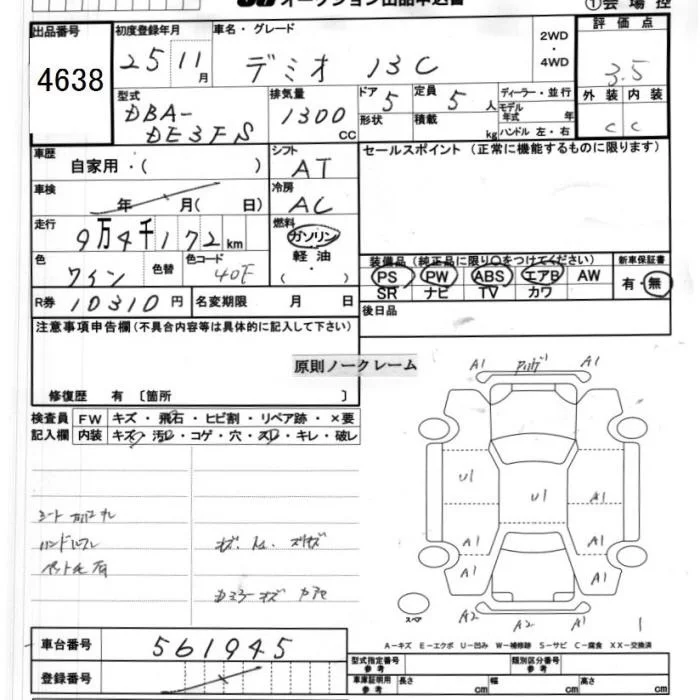 オークション出品申込書 ①会場控
出品番号 初度登録年月 車名・グレード 2WD ・ 4WD 評価点
4638 25 11月 デミオ 13C 3.5
型式 排気量 ドア 定員 ディーラー・並行 外装 内装
DBA- 1300 CC 5 5人 モデル年式 年 C C
DE3FS 形状 積載 kg ハンドル 左・右
車歴 自家用・( ) シフト AT セールスポイント (正常に機能するものに限ります)
車検 年 月( 日) 冷房 AC
走行 9万4千172km 燃料 ガソリン 軽油 ( ・ )
色 ワイン 色替 色コード 40F 装備品 (純正品に限り○をつけてください) 新車保証書
PS PW ABS エアB AW 有・無
SR ナビ TV カワ
R券 10310円 名変期限 月 日 後日品
注意事項申告欄 (不具合内容等は具体的に記入して下さい)
原則ノークレーム
修復歴 有 〔箇所 〕
検査員 FW キズ・飛石・ヒビ割・リペア跡・×要
記入欄 内装 キズ・汚レ・コゲ・穴・スレ・キレ・破レ
A1 A1
U1 U1 A1
シート
A1 A1
A1 A1
A2 A2 A1
スペア
1
A-キズ E-エクボ U-凹み W-補修跡 S-サビ C-腐食 XX-交換済
車台番号 561945 型式指定番号 参考 類別区分番号 参考
登録番号 車庫証明用 参考 長さ cm 幅 cm 高さ cm